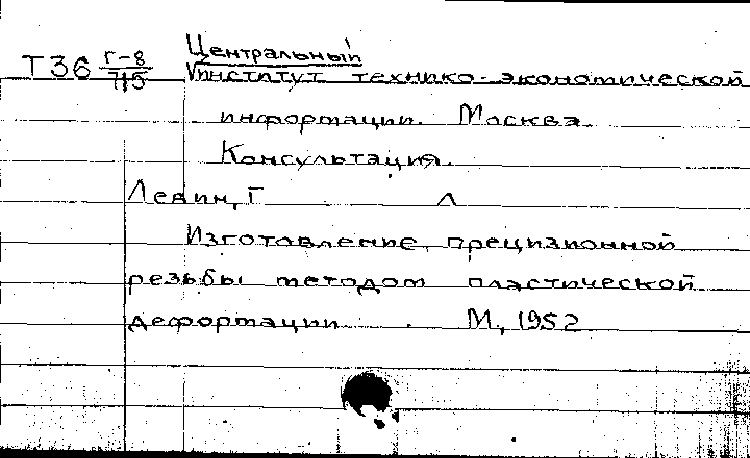 Центральный
Т36 Г-8/715 институт технико-экономической
информации. Москва.
Консультация.
Левин, Г Л
Изготовление прецизионной
резьбы методом пластической
деформации. М, 1952